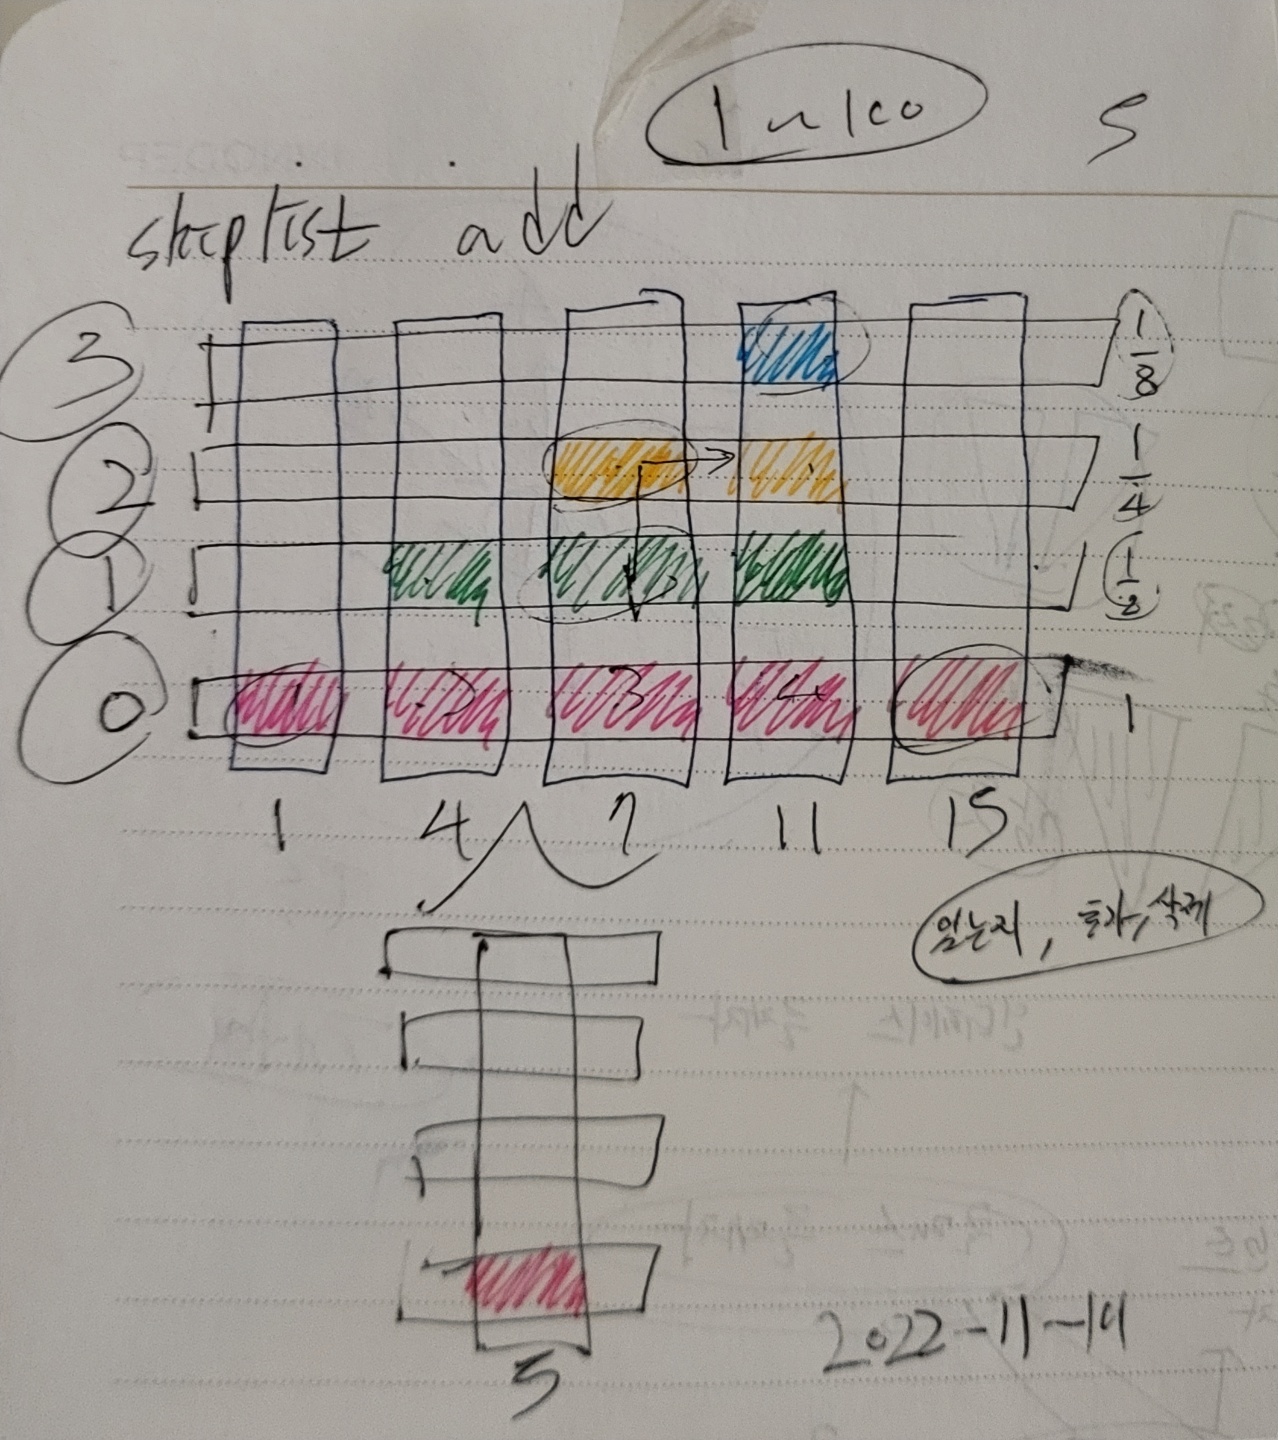 1 ~ 100 5
skiplist add
3 1/8
2 1/4
1 1/2
0 1 2 3 4 1
1 4 7 11 15
있는지, 추가, 삭제
5
2022-11-19